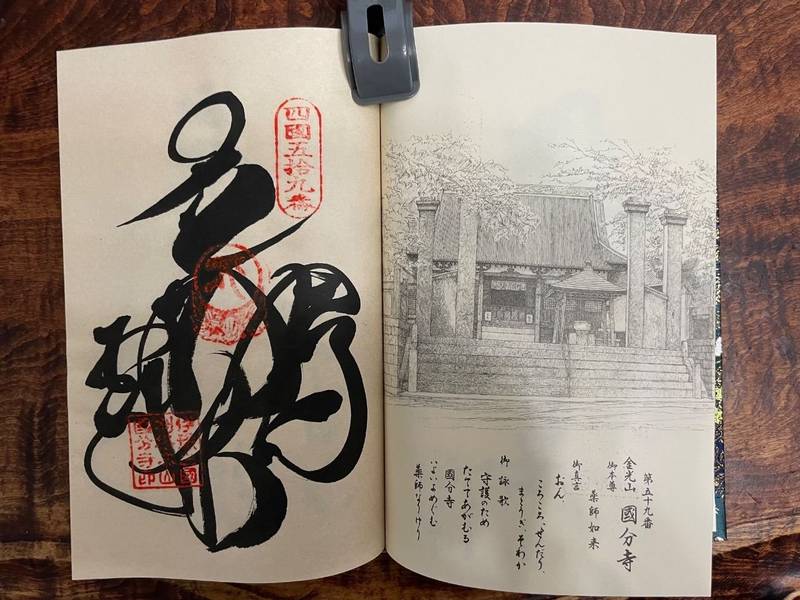 第五十九番
金光山 國分寺
御本尊 薬師如来
御真言
おん
ころころ、せんだり、
まとうぎ、そわか
御詠歌
守護のため
たててあがむる
国分寺
いよいよめぐむ
薬師なりけり
四國五拾九番